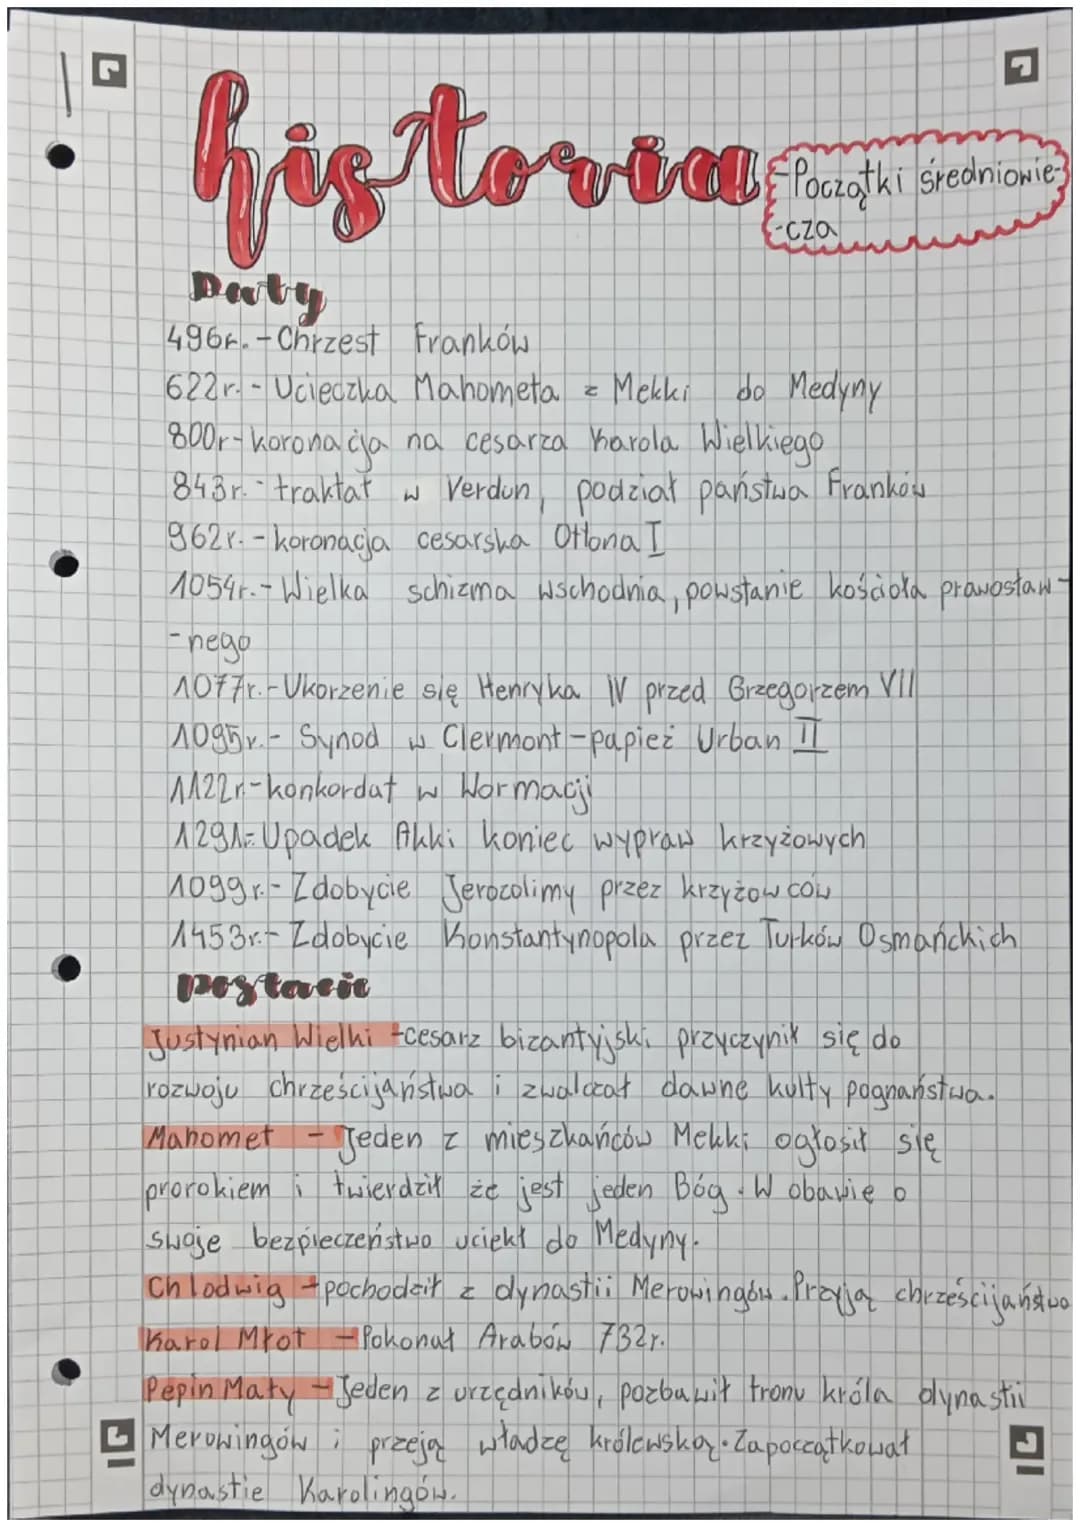 historia
-Początki średniowie-
-cza
Daty
496r.-Chrzest Franków
622r.- Ucieczka Mahometa z Mekki do Medyny
800r-koronacja na cesarza Karola Wielkiego
843r.-traktat w Verdun, podział państwa Franków
962r.-koronacja cesarska Ottona I
1054r.-Wielka schizma wschodnia, powstanie kościoła prawosław-
-nego
1077r.-Ukorzenie się Henryka IV przed Grzegorzem VII
1095r.- Synod w Clermont-papież Urban II
1122r.-konkordat w Wormacji
1291-Upadek Akki koniec wypraw krzyżowych
1099r.-Zdobycie Jerozolimy przez krzyżowców
1453r.-Zdobycie Konstantynopola przez Turków Osmańckich
postacie
Justynian Wielki -cesarz bizantyjski przyczynił się do
rozwoju chrześcijaństwa i zwalczał dawne kulty pogaństwa.
Mahomet - Jeden z mieszkańców Mekki ogłosił się
prorokiem i twierdził że jest jeden Bóg. W obawie o
swoje bezpieczeństwo uciekł do Medyny.
Chlodwig -pochodził z dynastii Merowingów. Przyją chrześcijaństwo
Karol Młot -Pokonał Arabów 732r.
Pepin Mały -Jeden z urzędników, pozbawił tronu króla dynastii
Merowingów i przeją władzę królewską. Zapoczątkował
dynastie Karolingów.